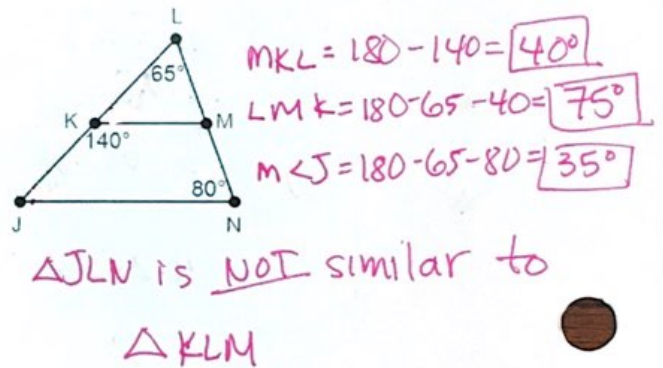 L
65°
K
M
140°
80°
J
N
MKL = 180 - 140 = 40°
LMK = 180-65-40= 75°
m<J = 180-65-80= 35°
△JLN is NOT similar to
△KLM